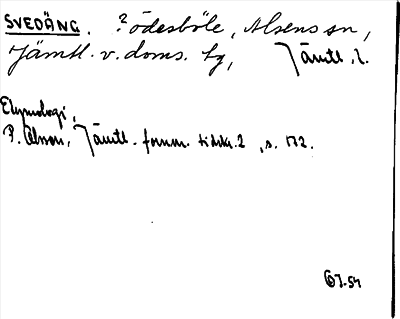 SVEDÄNG. ?Ödesböle, Alsens sn,
Jämtl. v. doms. tg, Jämtl. l.
Etymologi,
P. Olsson, Jämtl. fornm. tidskr. 2, s. 172.